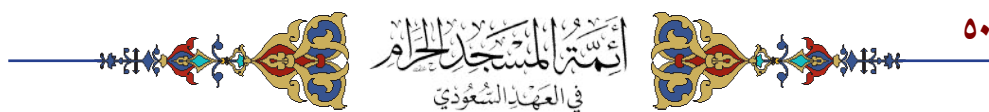 ٥٠
أئمة المسجد الحرام
في العهد السعودي